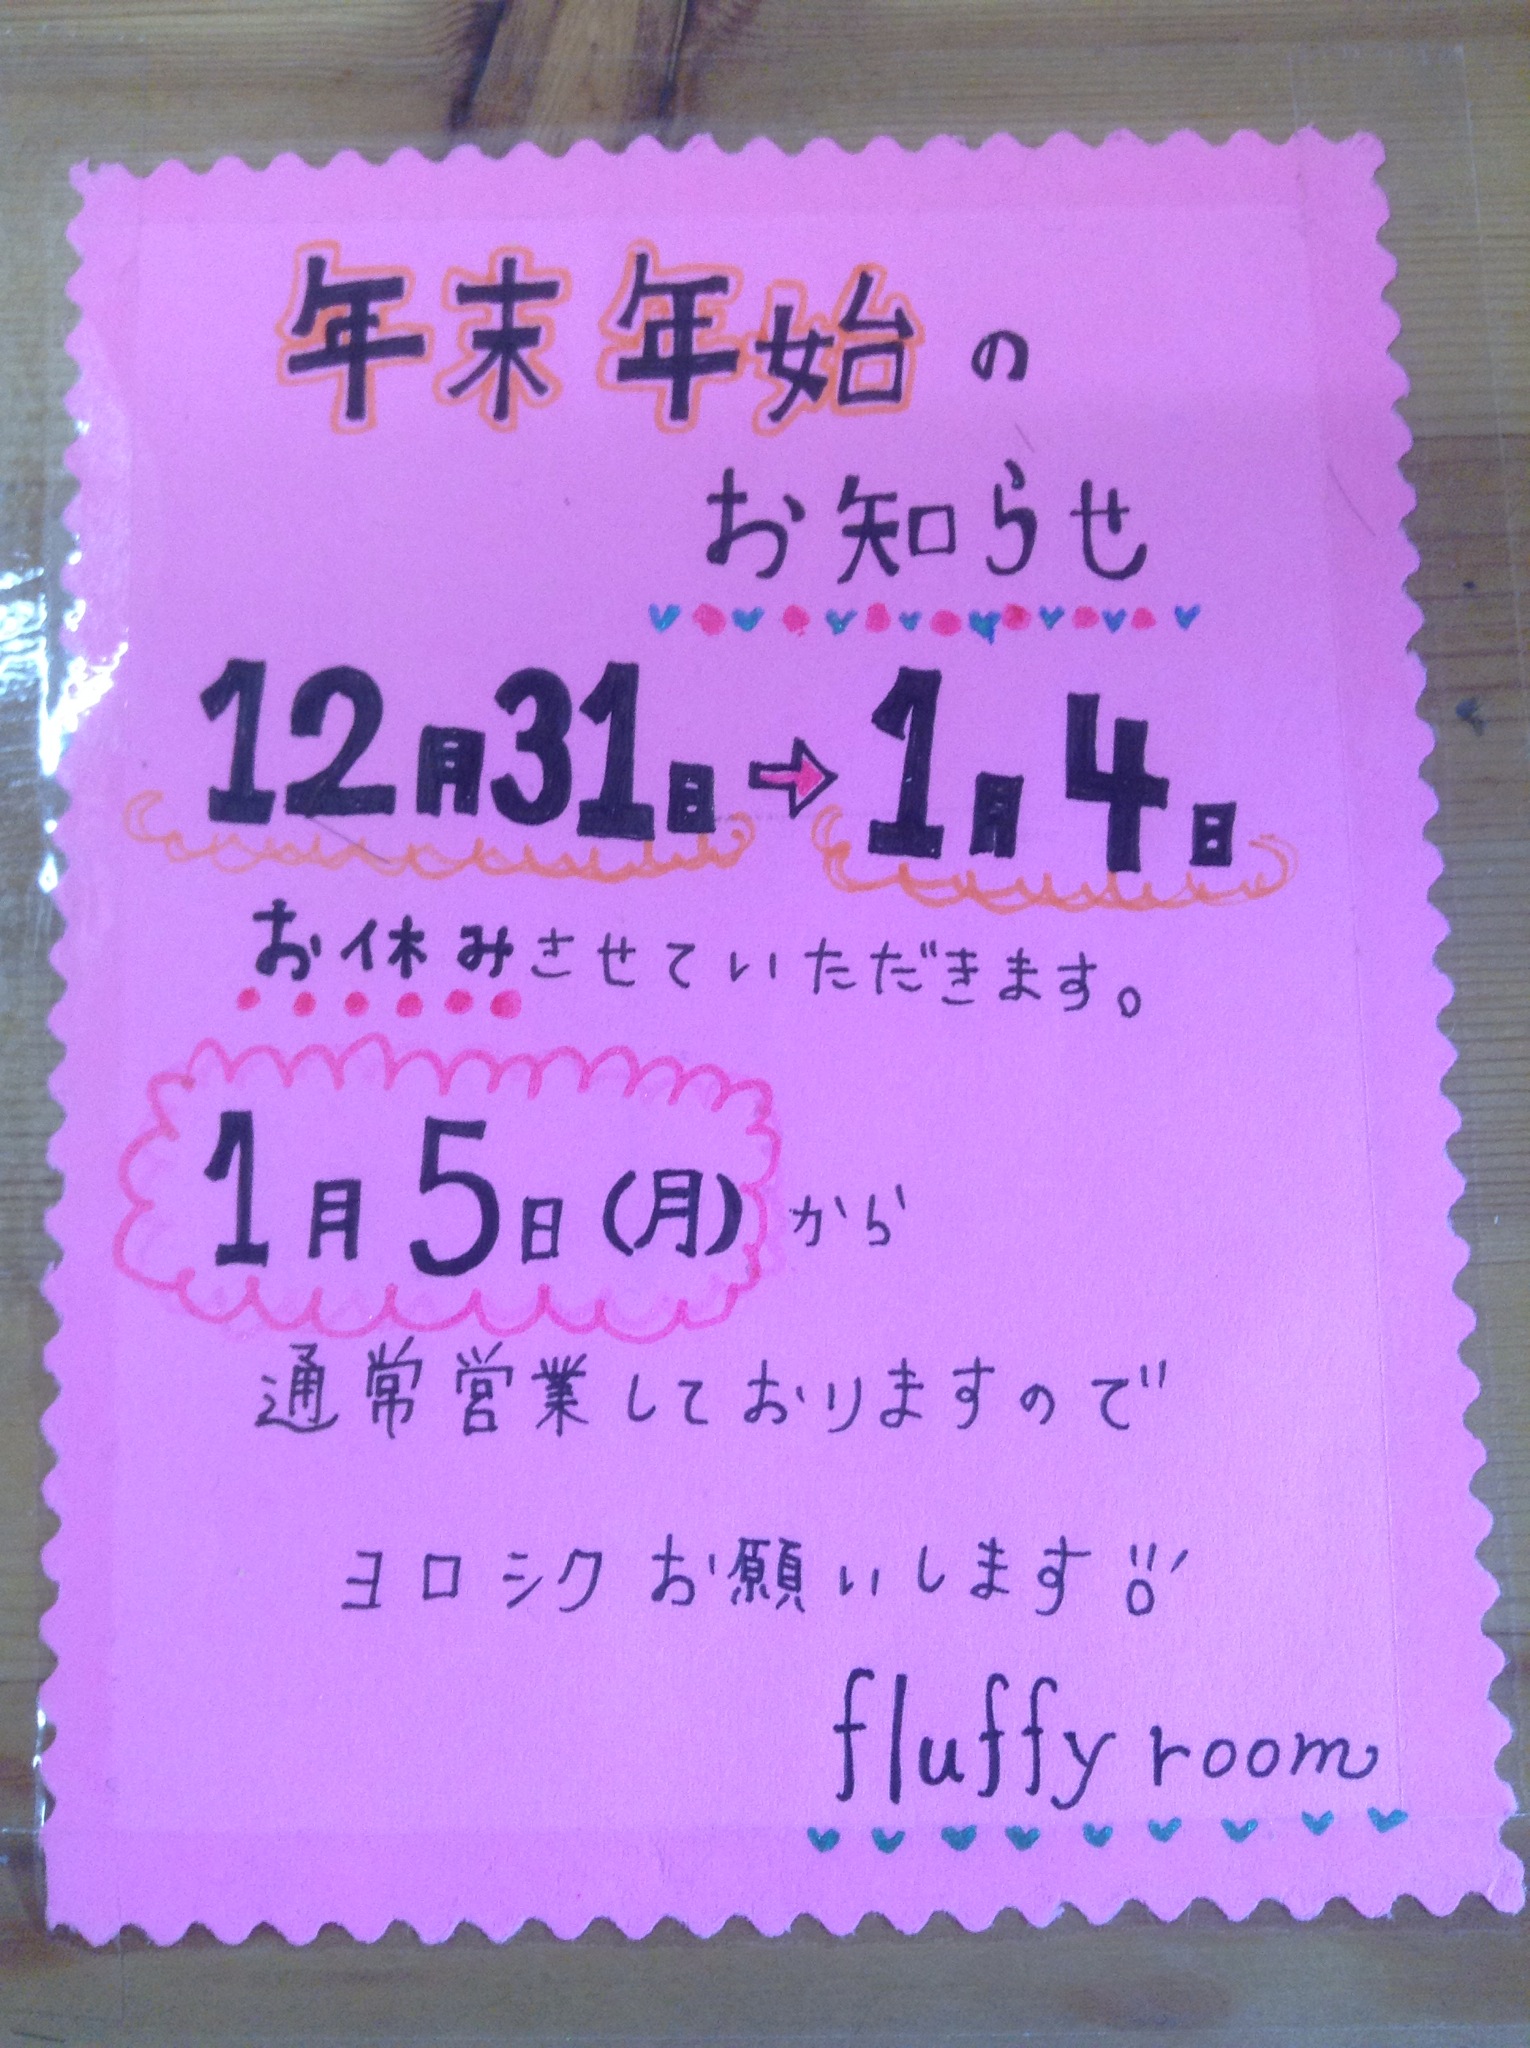 年末年始の
お知らせ
12月31日→1月4日
お休みさせていただきます。
1月5日(月)から
通常営業しておりますので
ヨロシクお願いします!!
fluffy room